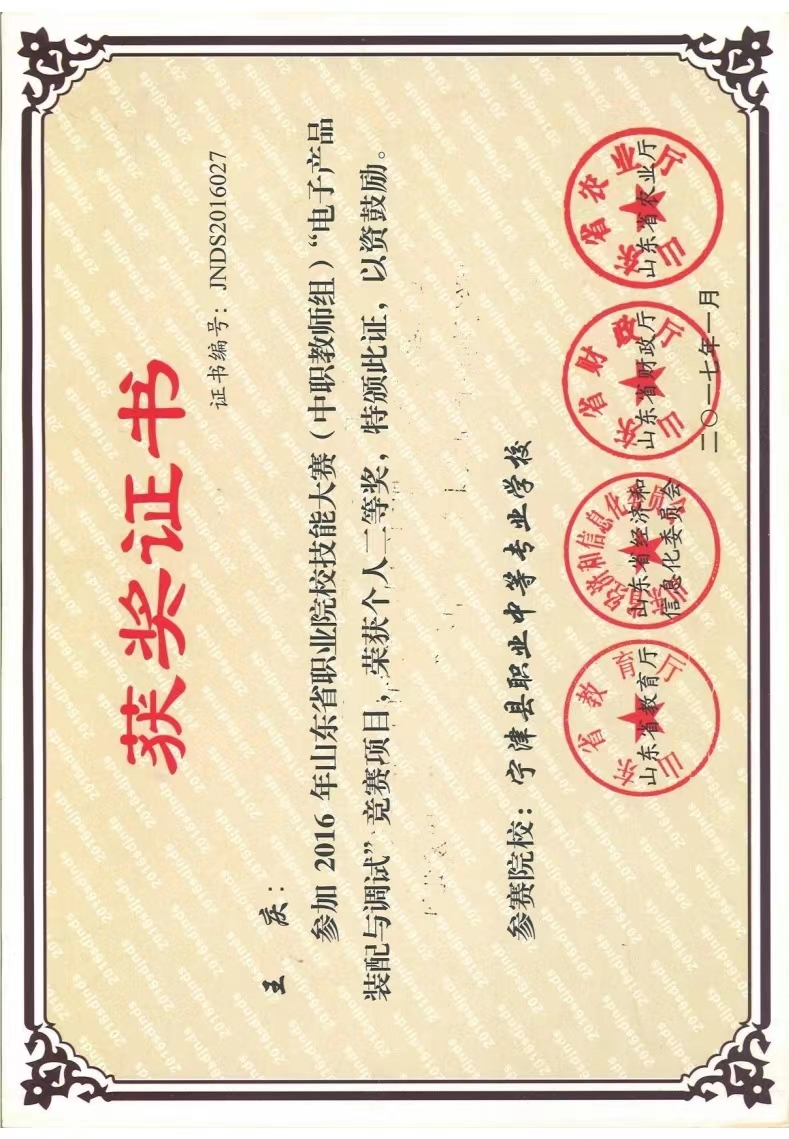 获奖证书
证书编号：JNDS2016027
王 庆：
参加 2016 年山东省职业院校技能大赛（中职教师组）“电子产品
装配与调试”竞赛项目，荣获个人二等奖，特颁此证，以资鼓励。
参赛院校：宁津县职业中等专业学校
山东省教育厅
山东省经济和
信息化委员会
山东省财政厅
山东省农业厅
二〇一七年一月
山东省教育厅
山东省财政厅
山东省农业厅
2016sdjnds